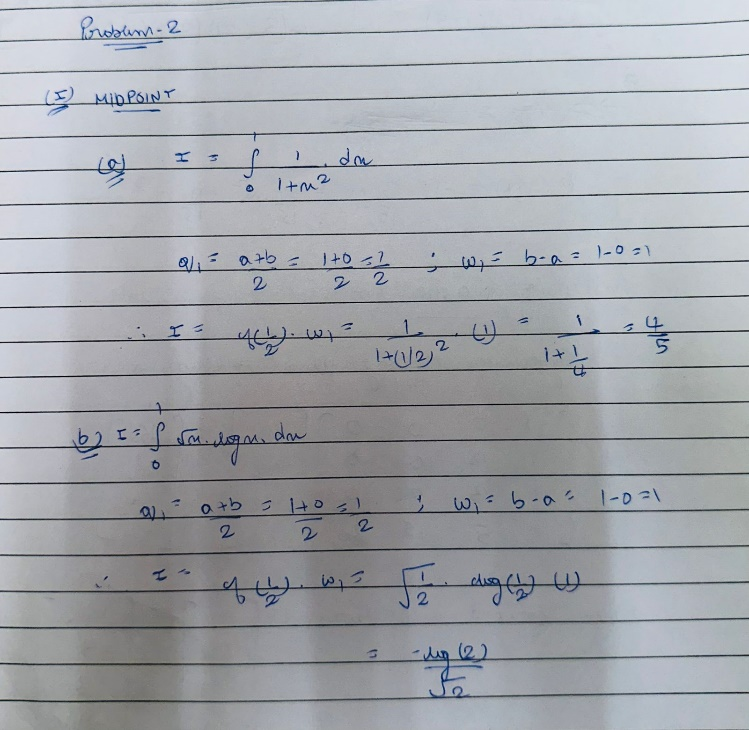 Problem-2
(I) MIDPOINT
(a) I = ∫₀¹ 1/(1+x²) . dx
x₁ = (a+b)/2 = (1+0)/2 = 1/2 ; w₁ = b-a = 1-0 = 1
∴ I = f(1/2) . w₁ = 1/(1+(1/2)²) . (1) = 1/(1+1/4) = 4/5
b) I = ∫₀¹ √x . log x . dx
x₁ = (a+b)/2 = (1+0)/2 = 1/2 ; w₁ = b-a = 1-0 = 1
∴ I = f(1/2) . w₁ = √(1/2) . log(1/2) (1)
= -log(2)/√2